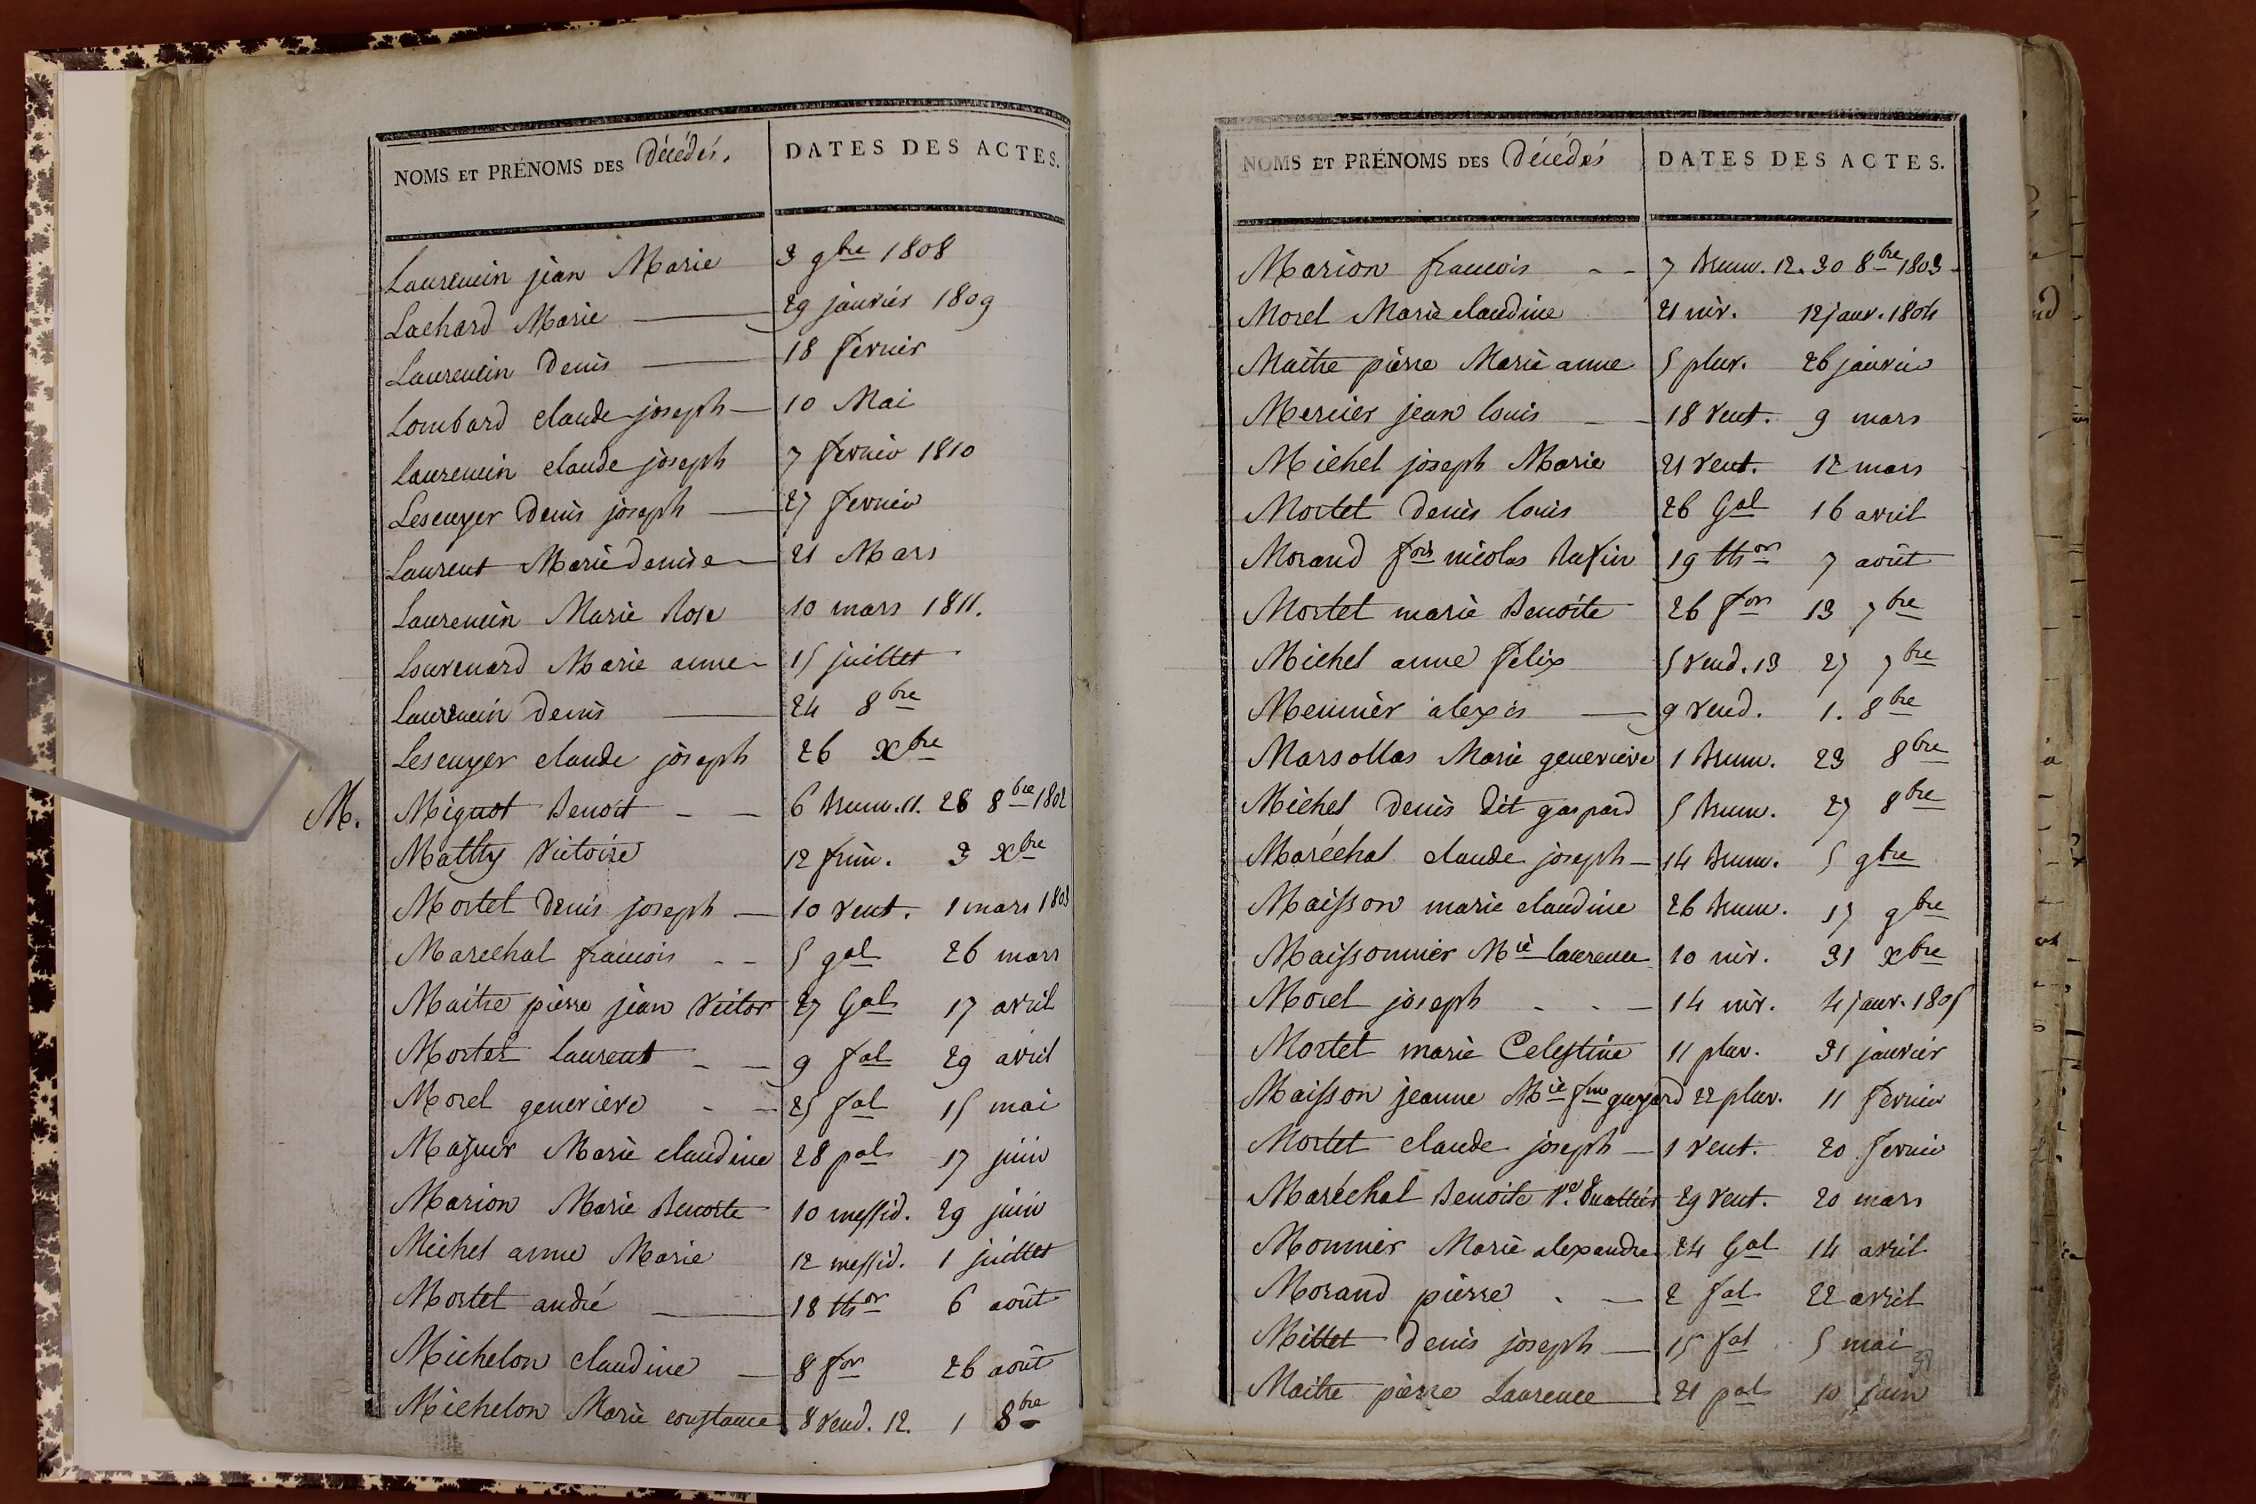 NOMS ET PRÉNOMS DES Décédés. DATES DES ACTES.
Laurencin jean Marie 3 9bre 1808
Lachard Marie 29 janvier 1809
Laurencin Denis 18 fevrier
Lombard claude joseph 10 Mai
Laurencin claude joseph 7 fevrier 1810
Lescuyer Denis joseph 27 fevrier
Laurent Marie Denise 21 Mars
Laurencin Marie Rose 10 mars 1811.
Louvenard Marie anne 15 juillet
Laurencin Denis 24 8bre
Lescuyer claude joseph 26 Xbre
M. Miguot Benoit 6 Brum. 11. 28 8bre 1802
Matthy Victoire 12 frim. 3 Xbre
Mortet Denis joseph 10 vent. 1 mars 1803
Marechal francois 5 gal 26 mars
Maitre pierre jean Victor 27 Gal 17 avril
Mortet Laurent 9 fal 29 avril
Morel genevieve 25 fal 15 mai
Marie claudine 28 pal 17 juin
Marion Marie Benoite 10 messid. 29 juin
Michel anne Marie 12 messid. 1 juillet
Mortet andré 18 thor 6 août
Michelon claudine 8 for 26 août
Michelon Marie constance 8 vend. 12. 1 8bre
NOMS ET PRÉNOMS DES Décédés DATES DES ACTES.
Marion francois 7 Brum. 12. 30 8bre 1803
Morel Marie claudine 21 niv. 12 janv. 1804
Maitre pierre Marie anne 5 pluv. 26 janvier
Mercier jean louis 18 vent. 9 mars
Michel joseph Marie 21 vent. 12 mars
Mortet Denis louis 26 Gal 16 avril
Morand fois nicolas Rufin 19 thor 7 août
Mortet marie Benoite 26 for 13 7bre
Michel anne félix 5 vend. 13 27 7bre
Meunier alexis 9 vend. 1. 8bre
Marsollas Marie genevieve 1 Brum. 23 8bre
Michel Denis dit gaspard 5 Brum. 27 8bre
Maréchal claude joseph 14 Brum. 5 9bre
Maisson marie claudine 26 Brum. 17 9bre
Maissonnier Mie laurence 10 niv. 31 Xbre
Morel joseph 14 niv. 4 janv. 1805
Mortet marie Celestine 11 pluv. 31 janvier
Maisson jeanne Mie fme guyard 22 pluv. 11 fevrier
Mortet claude joseph 1 vent. 20 fevrier
Maréchal Benoite Ve 29 vent. 20 mars
Monnier Marie alexandre 24 Gal 14 avril
Morand pierre 2 fal 22 avril
Millet Denis joseph 15 fal 5 mai
Maitre pierre Laurence 21 pal 10 juin